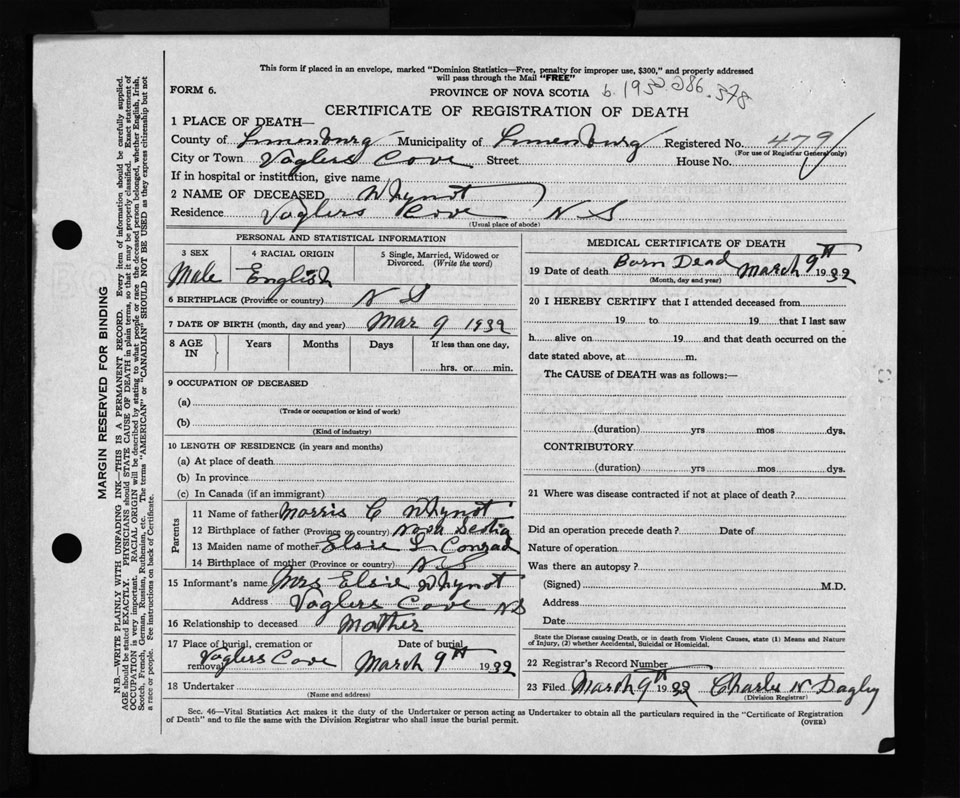 This form if placed in an envelope, marked "Dominion Statistics—Free, penalty for improper use, $300," and properly addressed
will pass through the Mail "FREE"
FORM 6.
PROVINCE OF NOVA SCOTIA b. 1932.286.378
CERTIFICATE OF REGISTRATION OF DEATH
1 PLACE OF DEATH—
County of Lunenburg Municipality of Lunenburg Registered No. 479
(For use of Registrar General only)
City or Town Voglers Cove Street House No.
If in hospital or institution, give name
2 NAME OF DECEASED Whynot
Residence Voglers Cove N S
(Usual place of abode)
PERSONAL AND STATISTICAL INFORMATION
3 SEX 4 RACIAL ORIGIN 5 Single, Married, Widowed or
Divorced. (Write the word)
Male English
6 BIRTHPLACE (Province or country) N S
7 DATE OF BIRTH (month, day and year) Mar 9 1932
8 AGE Years Months Days If less than one day,
IN hrs. or min.
9 OCCUPATION OF DECEASED
(a)
(Trade or occupation or kind of work)
(b)
(Kind of industry)
10 LENGTH OF RESIDENCE (in years and months)
(a) At place of death
(b) In province
(c) In Canada (if an immigrant)
Parents
11 Name of father Morris C Whynot
12 Birthplace of father (Province or country) Nova Scotia
13 Maiden name of mother Elsie L Conrad
14 Birthplace of mother (Province or country) N S
15 Informant's name Mrs Elsie Whynot
Address Voglers Cove NS
16 Relationship to deceased Mother
17 Place of burial, cremation or Date of burial
removal Voglers Cove March 9th 1932
18 Undertaker
(Name and address)
MEDICAL CERTIFICATE OF DEATH
19 Date of death Born Dead March 9th 1932
(Month, day and year)
20 I HEREBY CERTIFY that I attended deceased from
19 to 19 that I last saw
h alive on 19 and that death occurred on the
date stated above, at m.
The CAUSE of DEATH was as follows:—
(duration) yrs mos dys.
CONTRIBUTORY
(duration) yrs mos dys.
21 Where was disease contracted if not at place of death?
Did an operation precede death? Date of
Nature of operation
Was there an autopsy?
(Signed) M.D.
Address
Date
State the Disease causing Death, or in death from Violent Causes, state (1) Means and Nature
of Injury, (2) whether Accidental, Suicidal or Homicidal.
22 Registrar's Record Number
23 Filed March 9th 1932 Charles N Dagley
(Division Registrar)
Sec. 46—Vital Statistics Act makes it the duty of the Undertaker or person acting as Undertaker to obtain all the particulars required in the "Certificate of Registration
of Death" and to file the same with the Division Registrar who shall issue the burial permit.
(OVER)
MARGIN RESERVED FOR BINDING
N.B.—WRITE PLAINLY WITH UNFADING INK—THIS IS A PERMANENT RECORD. Every item of information should be carefully supplied.
AGE should be stated EXACTLY. PHYSICIANS should STATE CAUSE OF DEATH in plain terms, so that it may be properly classified. Exact statement of
OCCUPATION is very important. RACIAL ORIGIN will be described by stating to what people or race the deceased person belonged, whether English, Irish,
Scotch, French, German, Russian, Ruthenian, etc. The terms "AMERICAN" or "CANADIAN" SHOULD NOT BE USED as they express citizenship but not
a race or people. See instructions on back of Certificate.